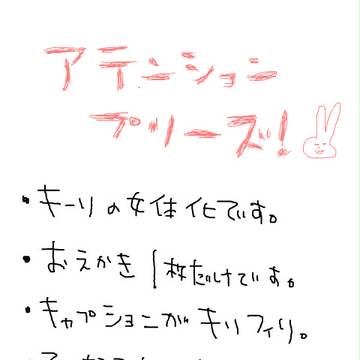 アテンション
プリーズ!
・キーリの女体化です。
・おえかき1枚だけです。
・キャプションがキリフィリ。